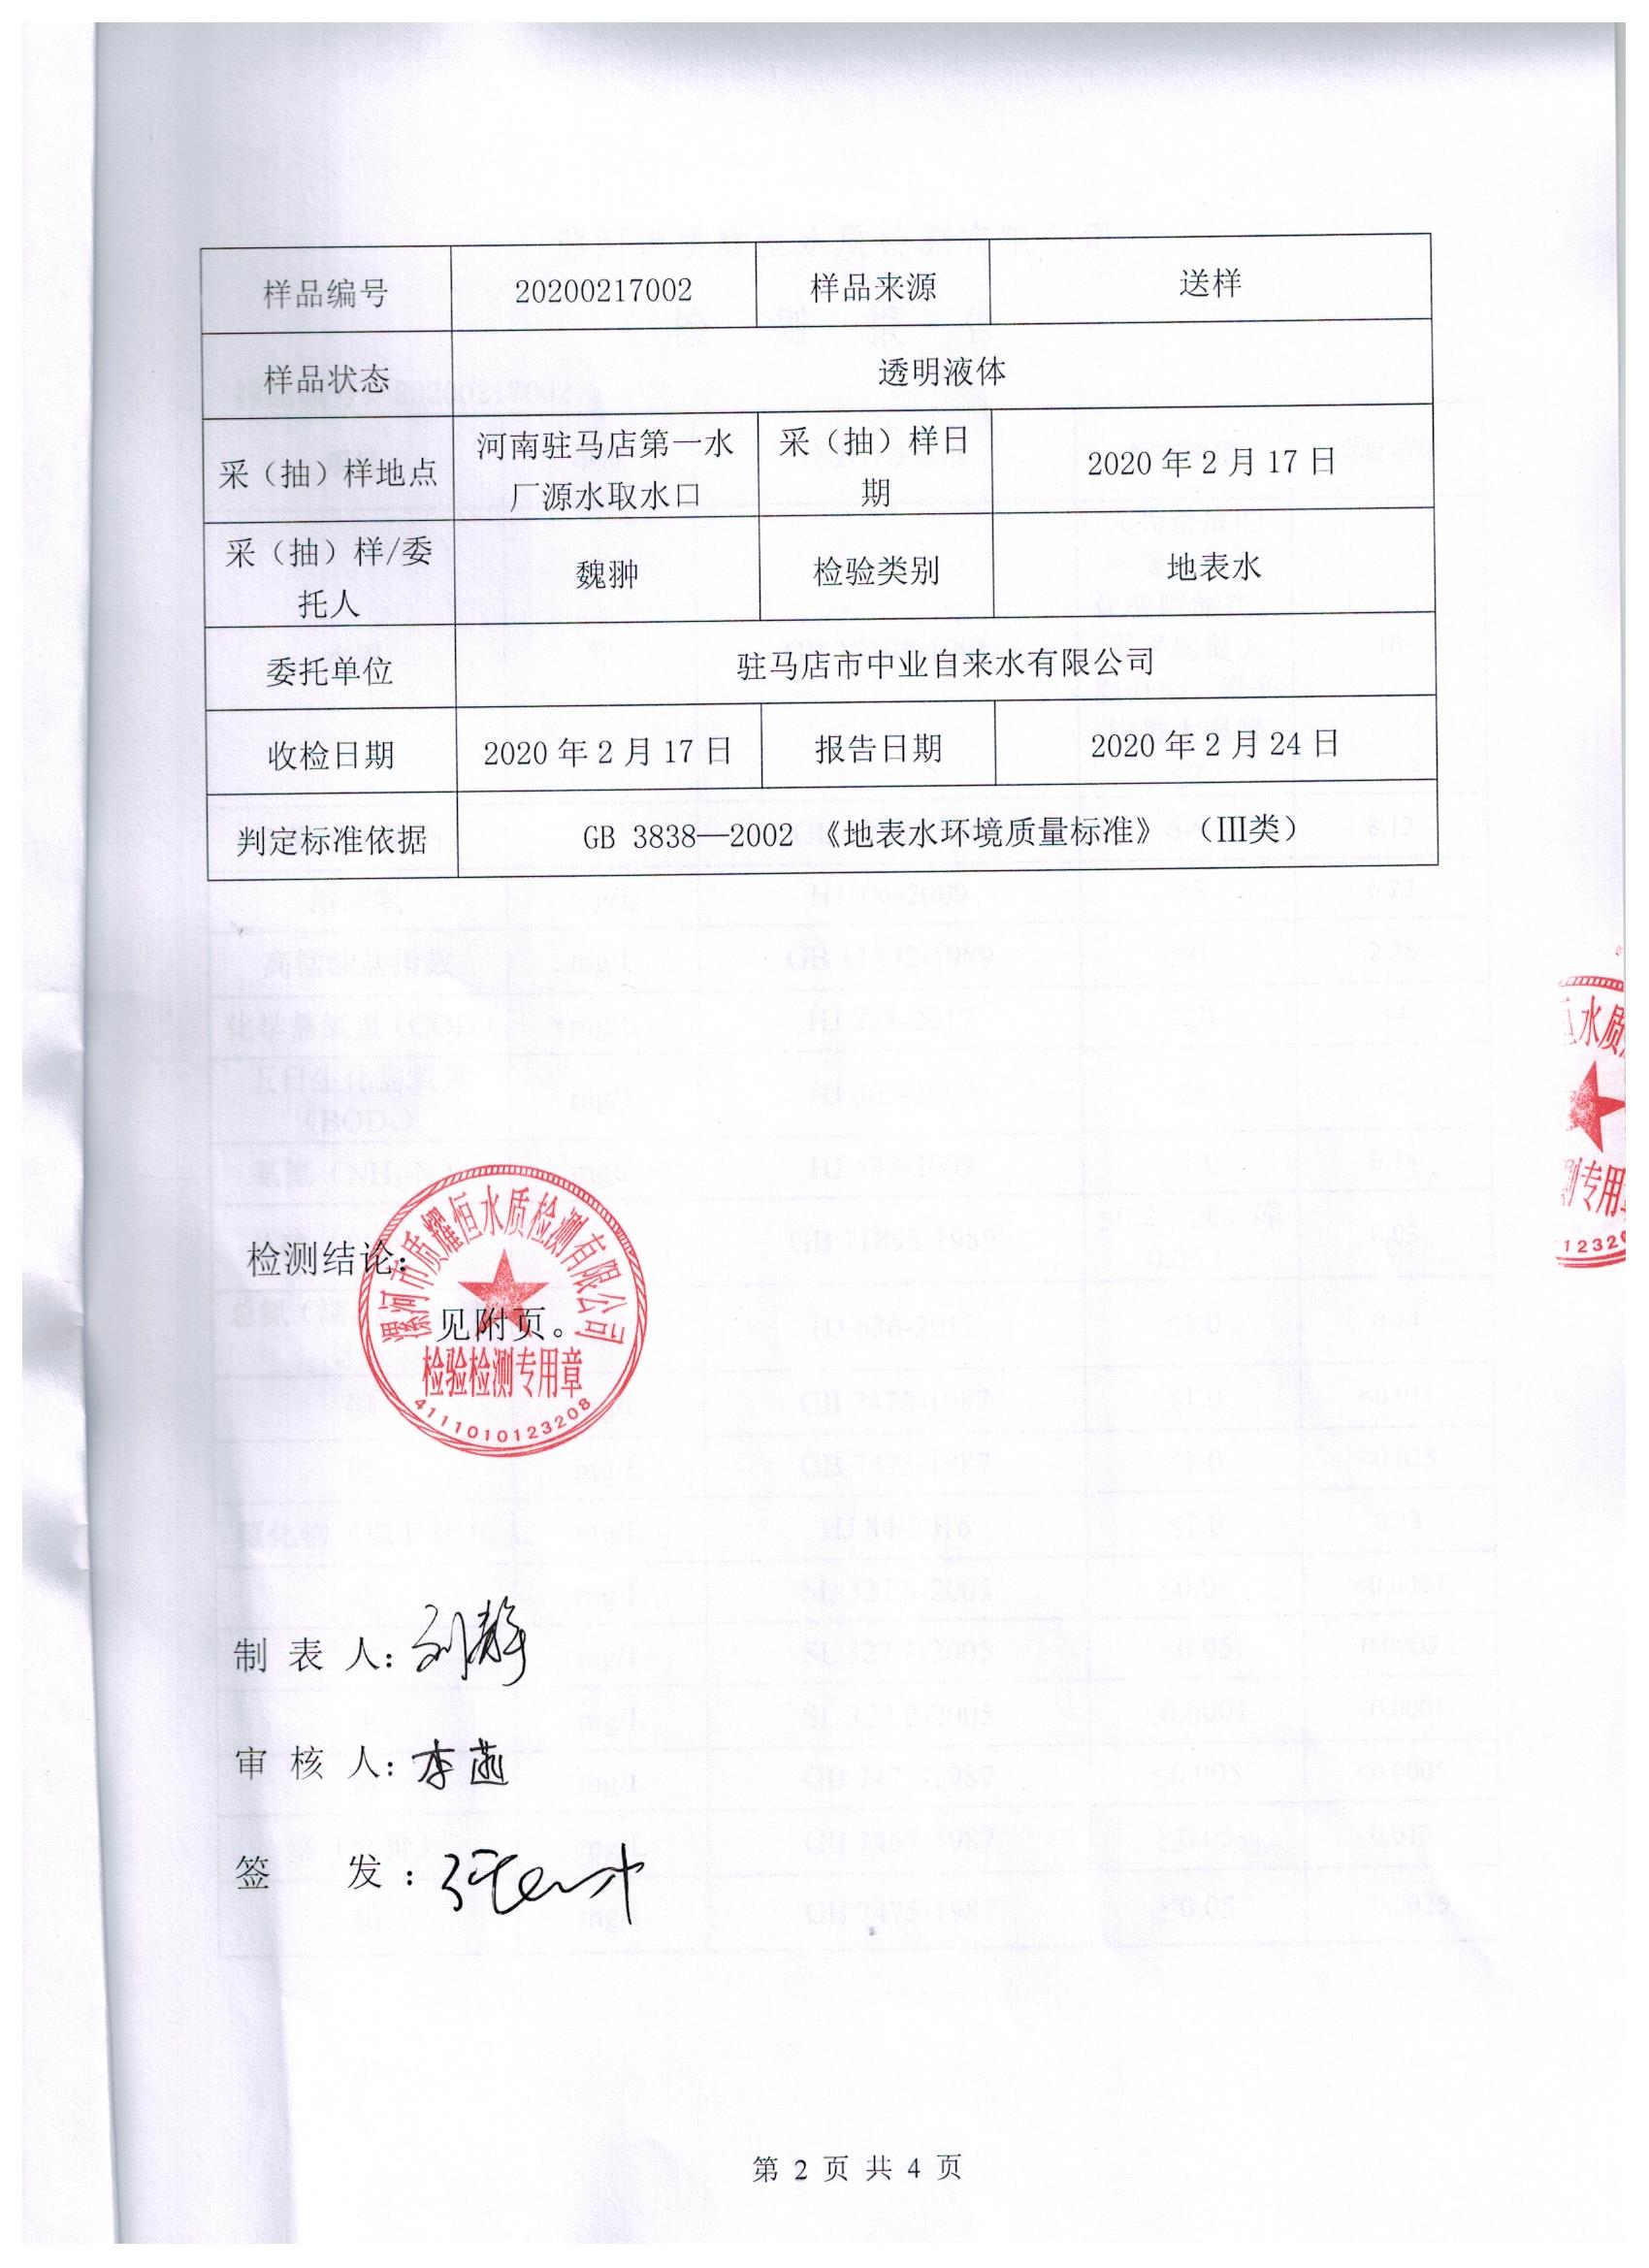 样品编号 20200217002 样品来源 送样
样品状态 透明液体
采（抽）样地点 河南驻马店第一水 采（抽）样日 2020年2月17日
厂源水取水口 期
采（抽）样/委 魏翀 检验类别 地表水
托人
委托单位 驻马店市中业自来水有限公司
收检日期 2020年2月17日 报告日期 2020年2月24日
判定标准依据 GB 3838—2002 《地表水环境质量标准》 （III类）
恒水质
测专用章
漯河市质耀恒水质检测有限公司
检测结论：
见附页。
检验检测专用章
4111010123208
制 表 人：刘静
审 核 人：李
签 发：
第 2 页 共 4 页